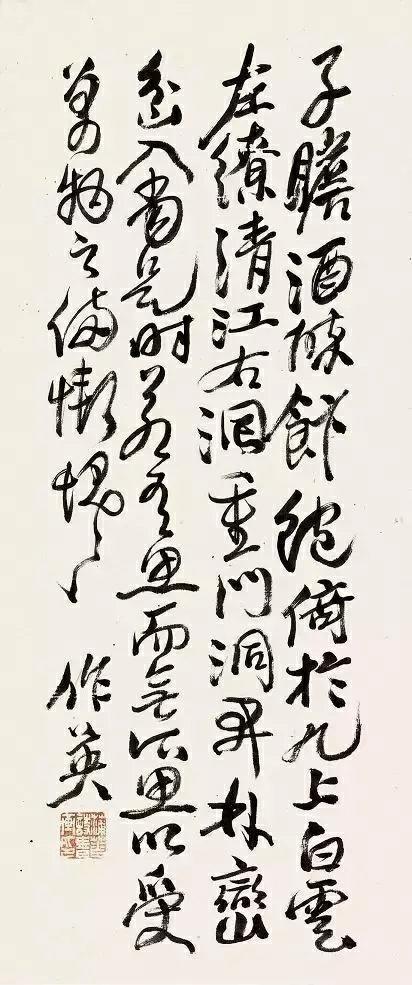 子瞻酒醉飰飽倚於几上白雲
左繚清江右洄重門洞開林巒
坌入當是時若有思而無所思以受
萬物之備慚愧〻 作英